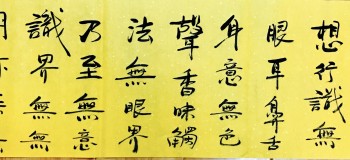 想行識無
眼耳鼻舌
身意無色
聲香味觸
法無眼界
乃至無意
識界無無